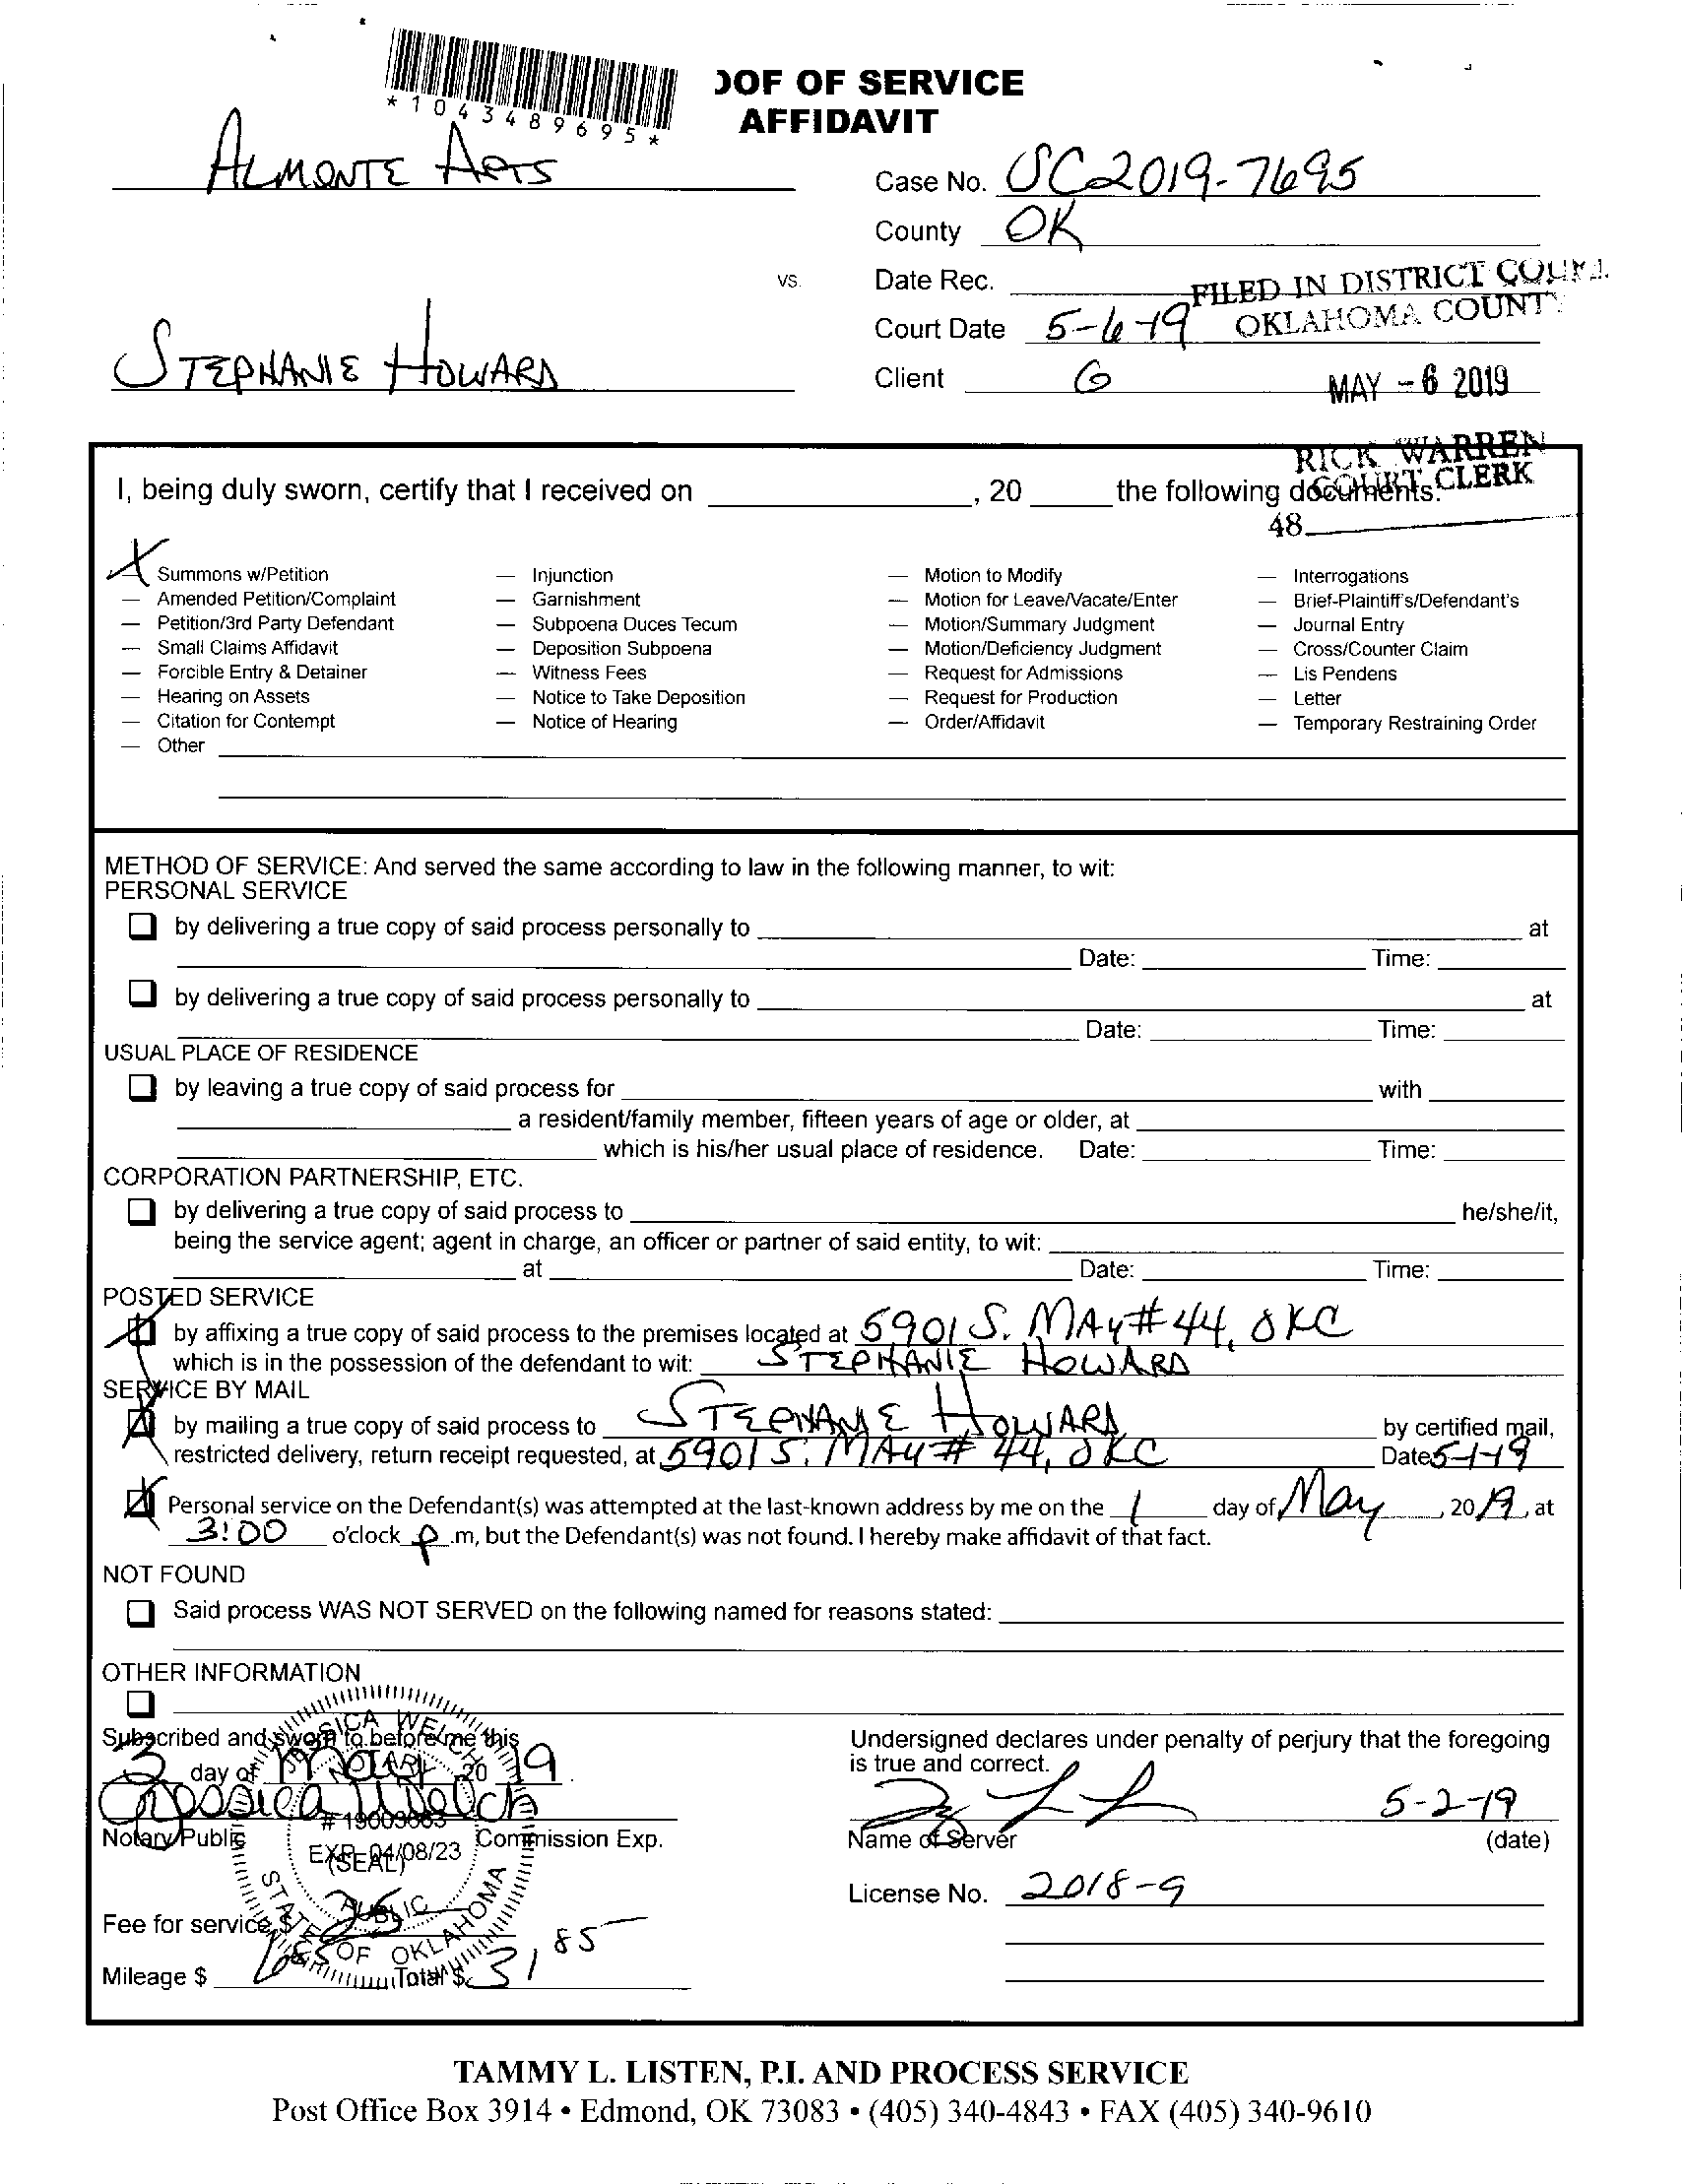 OF OF SERVICE
AFFIDAVIT
*1043489695*
ALMONTE APTS
Case No. SC2019-7695
County OK
vs.
Date Rec.
FILED IN DISTRICT COURT
OKLAHOMA COUNTY
Court Date 5-6-19
STEPHANIE HOWARD
Client G
MAY - 6 2019
RICK WARREN
COURT CLERK
48
I, being duly sworn, certify that I received on , 20 the following documents:
X Summons w/Petition
— Amended Petition/Complaint
— Petition/3rd Party Defendant
— Small Claims Affidavit
— Forcible Entry & Detainer
— Hearing on Assets
— Citation for Contempt
— Other
— Injunction
— Garnishment
— Subpoena Duces Tecum
— Deposition Subpoena
— Witness Fees
— Notice to Take Deposition
— Notice of Hearing
— Motion to Modify
— Motion for Leave/Vacate/Enter
— Motion/Summary Judgment
— Motion/Deficiency Judgment
— Request for Admissions
— Request for Production
— Order/Affidavit
— Interrogations
— Brief-Plaintiff's/Defendant's
— Journal Entry
— Cross/Counter Claim
— Lis Pendens
— Letter
— Temporary Restraining Order
METHOD OF SERVICE: And served the same according to law in the following manner, to wit:
PERSONAL SERVICE
by delivering a true copy of said process personally to at
Date: Time:
by delivering a true copy of said process personally to at
Date: Time:
USUAL PLACE OF RESIDENCE
by leaving a true copy of said process for with
a resident/family member, fifteen years of age or older, at
which is his/her usual place of residence. Date: Time:
CORPORATION PARTNERSHIP, ETC.
by delivering a true copy of said process to he/she/it,
being the service agent; agent in charge, an officer or partner of said entity, to wit:
at Date: Time:
POSTED SERVICE
by affixing a true copy of said process to the premises located at 5901 S. MAY #44, OKC
which is in the possession of the defendant to wit: STEPHANIE HOWARD
SERVICE BY MAIL
by mailing a true copy of said process to STEPHANIE HOWARD by certified mail,
restricted delivery, return receipt requested, at 5901 S. MAY # 44, OKC Date 5-1-19
Personal service on the Defendant(s) was attempted at the last-known address by me on the 1 day of May, 2019, at
3:00 o'clock p.m, but the Defendant(s) was not found. I hereby make affidavit of that fact.
NOT FOUND
Said process WAS NOT SERVED on the following named for reasons stated:
OTHER INFORMATION
Subscribed and sworn to before me this
3 day of May 20 19
Jessica Welch
Notary Public (SEAL) Commission Exp.
JESSICA WELCH
NOTARY
EXP. 04/08/23
PUBLIC
STATE OF OKLAHOMA
Undersigned declares under penalty of perjury that the foregoing
is true and correct.
5-2-19
Name of Server (date)
License No. 2018-9
Fee for service $ 25
Mileage $ 685 Total $ 31,85
TAMMY L. LISTEN, P.I. AND PROCESS SERVICE
Post Office Box 3914 • Edmond, OK 73083 • (405) 340-4843 • FAX (405) 340-9610